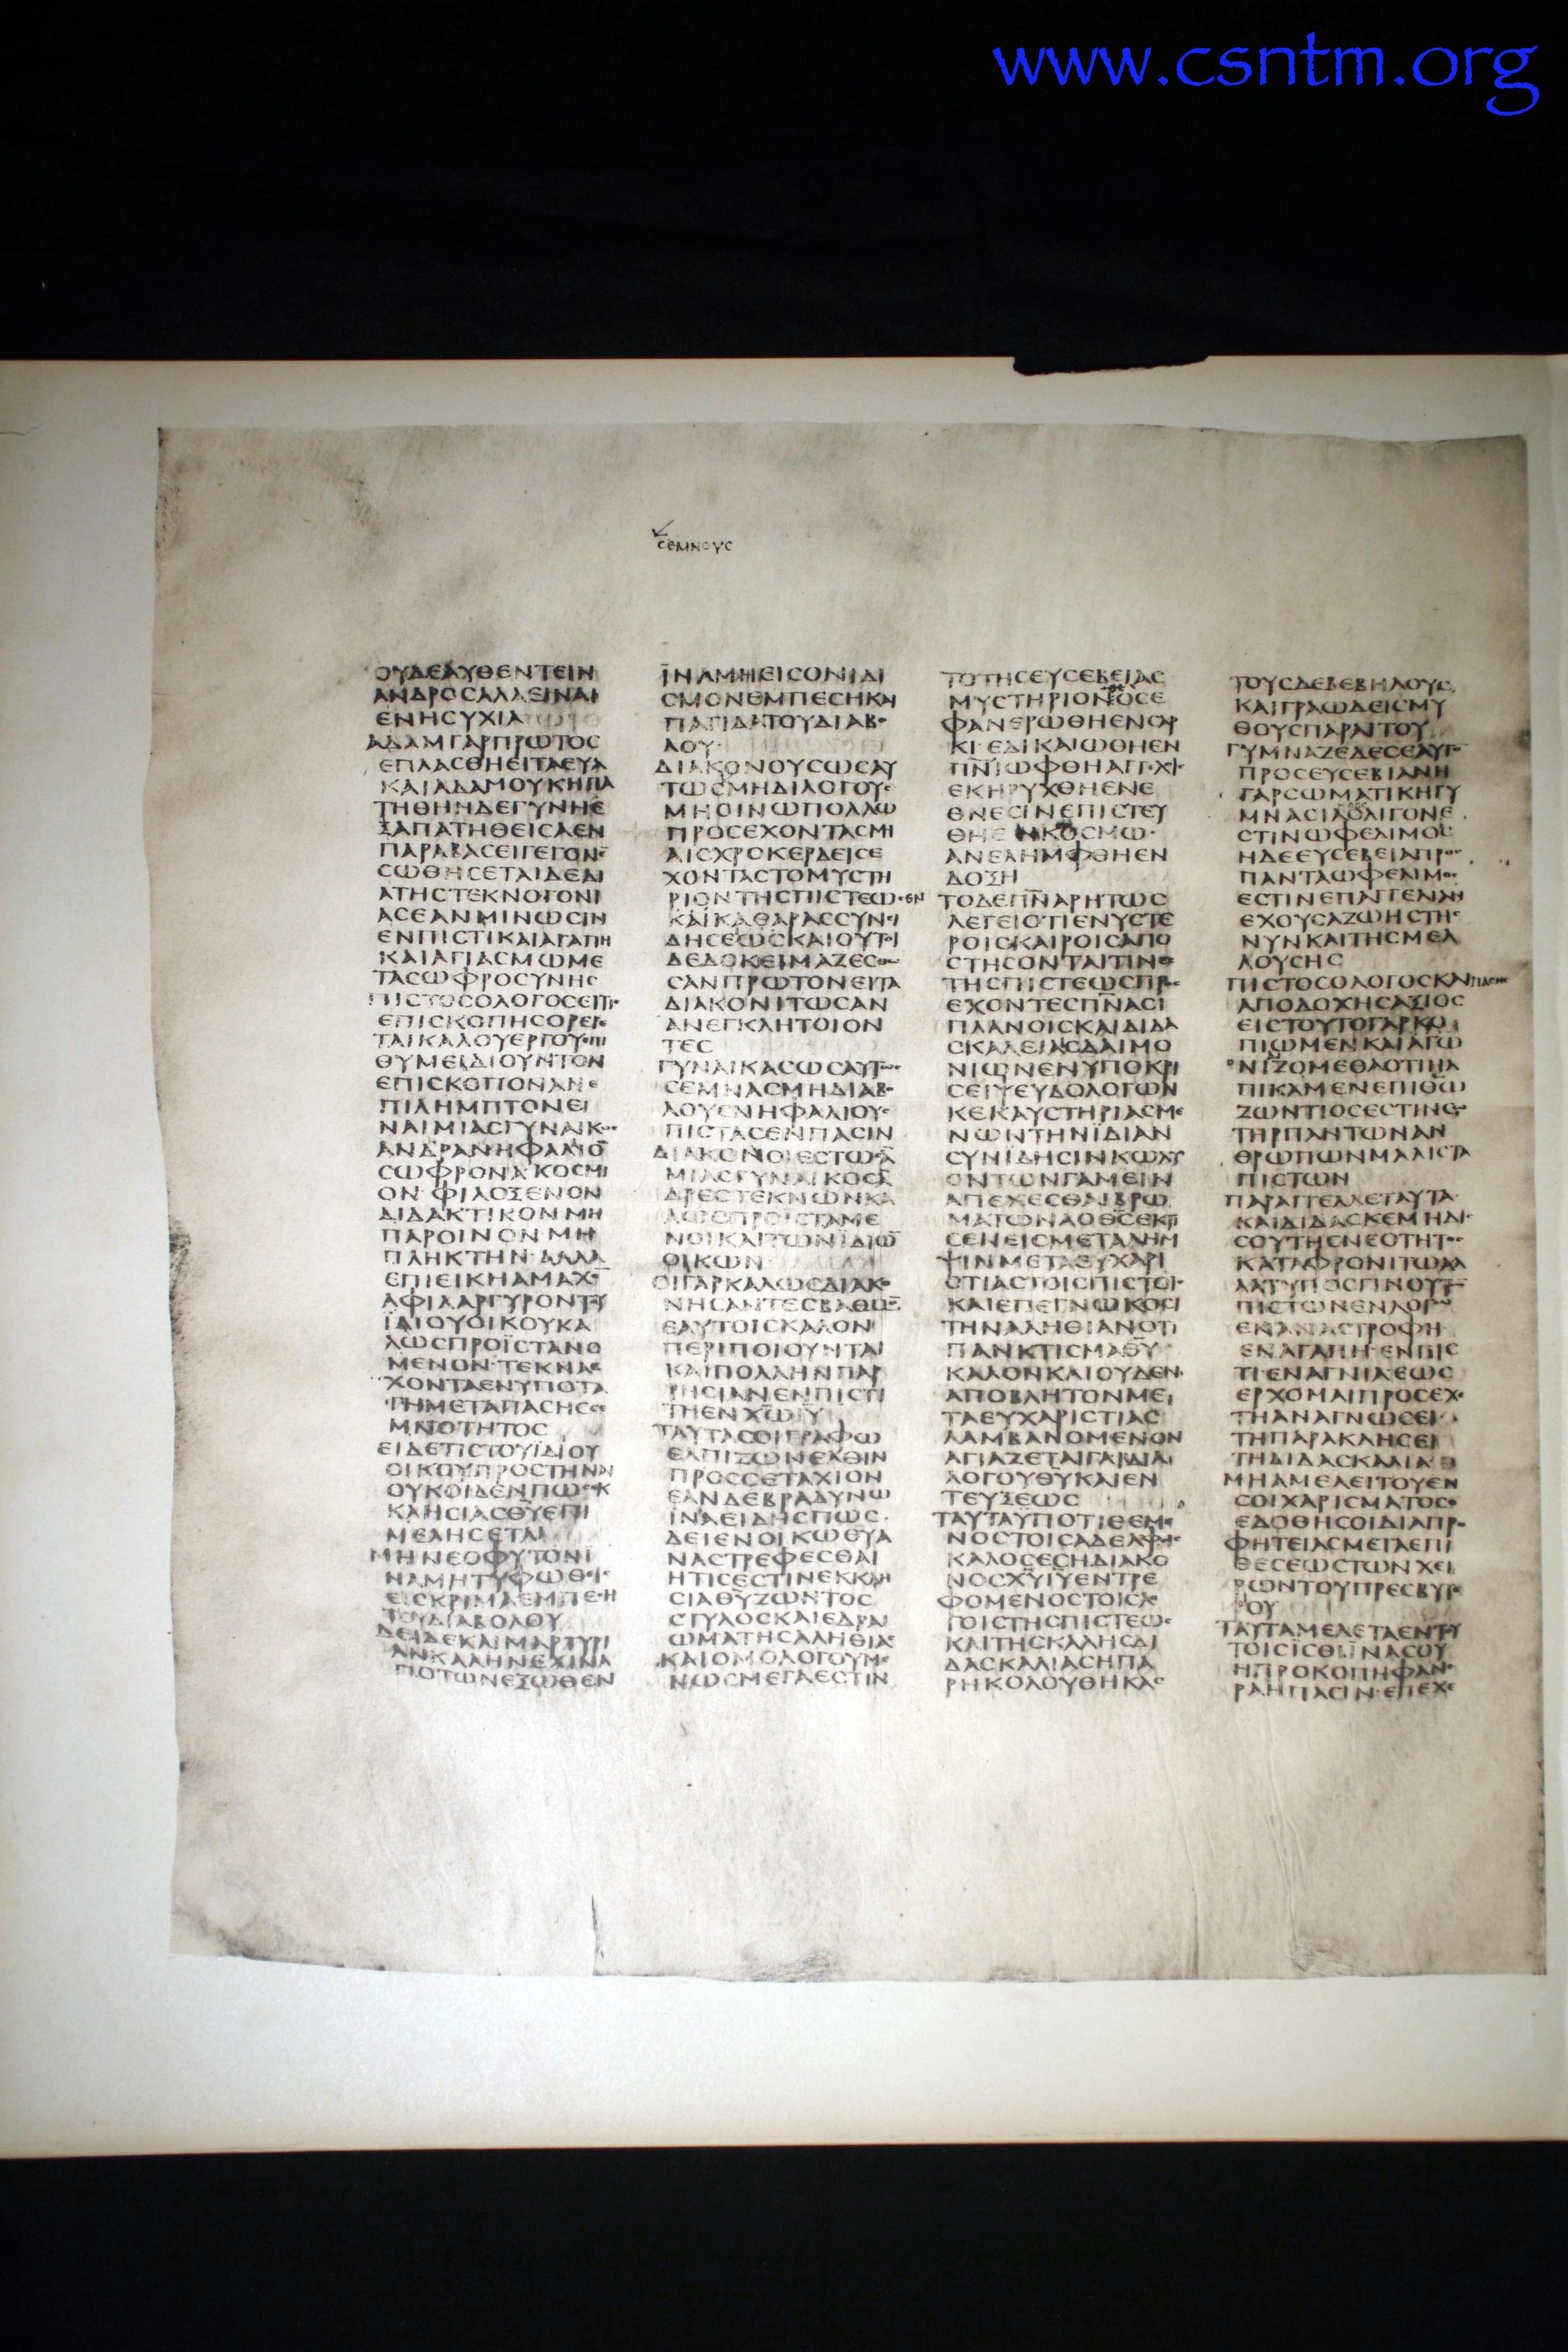 www.csntm.org
ϹΕΜΝΟΥϹ
ΟΥΔΕΑΥΘΕΝΤΕΙΝ
ΑΝΔΡΟϹΑΛΛΕΙΝΑΙ
ΕΝΗϹΥΧΙΑ
ΑΔΑΜΓΑΡΠΡΩΤΟϹ
ΕΠΛΑϹΘΗΕΙΤΑΕΥΑ
ΚΑΙΑΔΑΜΟΥΚΗΠΑ
ΤΗΘΗΗΔΕΓΥΝΗΕ
ΞΑΠΑΤΗΘΕΙϹΑΕΝ
ΠΑΡΑΒΑϹΕΙΓΕΓΟΝΕ
ϹΩΘΗϹΕΤΑΙΔΕΔΙ
ΑΤΗϹΤΕΚΝΟΓΟΝΙ
ΑϹΕΑΝΜΙΝΩϹΙΝ
ΕΝΠΙϹΤΙΚΑΙΑΓΑΠΗ
ΚΑΙΑΓΙΑϹΜΩΜΕ
ΤΑϹΩΦΡΟϹΥΝΗϹ
ΠΙϹΤΟϹΟΛΟΓΟϹΕΙΤΙϹ
ΕΠΙϹΚΟΠΗϹΟΡΕΓΕ
ΤΑΙΚΑΛΟΥΕΡΓΟΥΕΠΙ
ΘΥΜΕΙΔΙΟΥΝΤΟΝ
ΕΠΙϹΚΟΠΟΝΑΝΕ
ΠΙΛΗΜΠΤΟΝΕΙ
ΝΑΙΜΙΑϹΓΥΝΑΙΚΟϹ
ΑΝΔΡΑΝΗΦΑΛΙΟ̅
ϹΩΦΡΟΝΑΚΟϹΜΙ
ΟΝ·ΦΙΛΟΞΕΝΟΝ
ΔΙΔΑΚΤΙΚΟΝΜΗ
ΠΑΡΟΙΝΟΝΜΗ
ΠΛΗΚΤΗΝ·ΑΛΛΑ
ΕΠΙΕΙΚΗΑΜΑΧΟ̅
ΑΦΙΛΑΡΓΥΡΟΝΤΟΥ
ΪΔΙΟΥΟΙΚΟΥΚΑ
ΛΩϹΠΡΟΪϹΤΑΝΟ
ΜΕΝΟΝ·ΤΕΚΝΑΕ
ΧΟΝΤΑΕΝΥΠΟΤΑ
ΓΗΜΕΤΑΠΑϹΗϹϹΕ
ΜΝΟΤΗΤΟϹ
ΕΙΔΕΤΙϹΤΟΥΪΔΙΟΥ
ΟΙΚΟΥΠΡΟϹΤΗΝΑΙ
ΟΥΚΟΙΔΕΝΠΩϹΕΚ
ΚΛΗϹΙΑϹΘ̅Υ̅ΕΠΙ
ΜΕΛΗϹΕΤΑΙ
ΜΗΝΕΟΦΥΤΟΝΪ
ΝΑΜΗΤΥΦΩΘΙϹ
ΕΙϹΚΡΙΜΑΕΜΠΕϹΗ
ΤΟΥΔΙΑΒΟΛΟΥ
ΔΕΙΔΕΚΑΙΜΑΡΤΥΡΙ
ΑΝΚΑΛΗΝΕΧΙΝΑ
ΠΟΤΩΝΕΞΩΘΕΝ
ΪΝΑΜΗΕΙϹΟΝΙΔΙ
ϹΜΟΝΕΜΠΕϹΗΚΑΙ
ΠΑΓΙΔΑΤΟΥΔΙΑΒΟ
ΛΟΥ·
ΔΙΑΚΟΝΟΥϹΩϹΑΥ
ΤΩϹΜΗΔΙΛΟΓΟΥϹ
ΜΗΟΙΝΩΠΟΛΛΩ
ΠΡΟϹΕΧΟΝΤΑϹΜΗ
ΑΙϹΧΡΟΚΕΡΔΕΙϹΕ
ΧΟΝΤΑϹΤΟΜΥϹΤΗ
ΡΙΟΝΤΗϹΠΙϹΤΕΩϹΕΝ
ΚΑΙΚΑΘΑΡΑϹϹΥΝΙ
ΔΗϹΕΩϹΚΑΙΟΥΤΟΙ
ΔΕΔΟΚΕΙΜΑΖΕϹΘΩ
ϹΑΝΠΡΩΤΟΝΕΙΤΑ
ΔΙΑΚΟΝΙΤΩϹΑΝ
ΑΝΕΓΚΛΗΤΟΙΟΝ
ΤΕϹ
ΓΥΝΑΙΚΑϹΩϹΑΥΤΩϹ
ϹΕΜΝΑϹΜΗΔΙΑΒΟ
ΛΟΥϹΝΗΦΑΛΙΟΥϹ
ΠΙϹΤΑϹΕΝΠΑϹΙΝ
ΔΙΑΚΟΝΟΙΕϹΤΩϹΑ̅
ΜΙΑϹΓΥΝΑΙΚΟϹΑ̅
ΔΡΕϹΤΕΚΝΩΝΚΑ
ΛΩϹΠΡΟΪϹΤΑΜΕ
ΝΟΙΚΑΙΤΩΝΪΔΙΩ̅
ΟΙΚΩΝ
ΟΙΓΑΡΚΑΛΩϹΔΙΑΚΟ
ΝΗϹΑΝΤΕϹΒΑΘΜΟ̅
ΕΑΥΤΟΙϹΚΑΛΟΝ
ΠΕΡΙΠΟΙΟΥΝΤΑΙ
ΚΑΙΠΟΛΛΗΝΠΑΡ
ΡΗϹΙΑΝΕΝΠΙϹΤΙ
ΤΗΕΝΧ̅Ω̅Ι̅Υ̅
ΤΑΥΤΑϹΟΙΓΡΑΦΩ
ΕΛΠΙΖΩΝΕΛΘΙΝ
ΠΡΟϹϹΕΤΑΧΙΟΝ
ΕΑΝΔΕΒΡΑΔΥΝΩ
ΪΝΑΕΙΔΗϹΠΩϹ
ΔΕΙΕΝΟΙΚΩΘ̅Υ̅Α
ΝΑϹΤΡΕΦΕϹΘΑΙ
ΗΤΙϹΕϹΤΙΝΕΚΚΛΗ
ϹΙΑΘ̅Υ̅ΖΩΝΤΟϹ
ϹΤΥΛΟϹΚΑΙΕΔΡΑΙ
ΩΜΑΤΗϹΑΛΗΘΙΑϹ
ΚΑΙΟΜΟΛΟΓΟΥΜΕ
ΝΩϹΜΕΓΑΕϹΤΙΝ
ΤΟΤΗϹΕΥϹΕΒΕΙΑϹ
ΜΥϹΤΗΡΙΟΝΟϹΕ
ΦΑΝΕΡΩΘΗΕΝϹΑΡ
ΚΙ·ΕΔΙΚΑΙΩΘΗΕΝ
Π̅Ν̅Ι̅ΩΦΘΗΑΓΓΕΛΟΙϹ
ΕΚΗΡΥΧΘΗΕΝΕ
ΘΝΕϹΙΝΕΠΙϹΤΕΥ
ΘΗΕΝΚΟϹΜΩ·
ΑΝΕΛΗΜΦΘΗΕΝ
ΔΟΞΗ
ΤΟΔΕΠ̅Ν̅Α̅ΡΗΤΩϹ
ΛΕΓΕΙΟΤΙΕΝΥϹΤΕ
ΡΟΙϹΚΑΙΡΟΙϹΑΠΟ
ϹΤΗϹΟΝΤΑΙΤΙΝΕϹ
ΤΗϹΠΙϹΤΕΩϹΠΡΟϹ
ΕΧΟΝΤΕϹΠ̅Ν̅Α̅ϹΙ
ΠΛΑΝΟΙϹΚΑΙΔΙΔΑ
ϹΚΑΛΕΙΑΙϹΔΑΙΜΟ
ΝΙΩΝΕΝΥΠΟΚΡΙ
ϹΕΙΨΕΥΔΟΛΟΓΩΝ
ΚΕΚΑΥϹΤΗΡΙΑϹΜΕ
ΝΩΝΤΗΝΪΔΙΑΝ
ϹΥΝΪΔΗϹΙΝΚΩΛΥ
ΟΝΤΩΝΓΑΜΕΙΝ
ΑΠΕΧΕϹΘΑΙΒΡΩ
ΜΑΤΩΝΑΟΘ̅Ϲ̅ΕΚΤΙ
ϹΕΝΕΙϹΜΕΤΑΛΗΜ
ΨΙΝΜΕΤΑΕΥΧΑΡΙ
ϹΤΙΑϹΤΟΙϹΠΙϹΤΟΙϹ
ΚΑΙΕΠΕΓΝΩΚΟϹΙ
ΤΗΝΑΛΗΘΙΑΝΟΤΙ
ΠΑΝΚΤΙϹΜΑΘ̅Υ̅
ΚΑΛΟΝΚΑΙΟΥΔΕΝ
ΑΠΟΒΛΗΤΟΝΜΕ
ΤΑΕΥΧΑΡΙϹΤΙΑϹ
ΛΑΜΒΑΝΟΜΕΝΟΝ
ΑΓΙΑΖΕΤΑΙΓΑΡΔΙΑ
ΛΟΓΟΥΘ̅Υ̅ΚΑΙΕΝ
ΤΕΥΞΕΩϹ
ΤΑΥΤΑΫΠΟΤΙΘΕΜΕ
ΝΟϹΤΟΙϹΑΔΕΛΦΟΙϹ
ΚΑΛΟϹΕϹΗΔΙΑΚΟ
ΝΟϹΧ̅Υ̅Ι̅Υ̅ΕΝΤΡΕ
ΦΟΜΕΝΟϹΤΟΙϹΛΟ
ΓΟΙϹΤΗϹΠΙϹΤΕΩϹ
ΚΑΙΤΗϹΚΑΛΗϹΔΙ
ΔΑϹΚΑΛΙΑϹΗΠΑ
ΡΗΚΟΛΟΥΘΗΚΑϹ
ΤΟΥϹΔΕΒΕΒΗΛΟΥϹ
ΚΑΙΓΡΑΩΔΕΙϹΜΥ
ΘΟΥϹΠΑΡΑΙΤΟΥ
ΓΥΜΝΑΖΕΔΕϹΕΑΥΤΟ̅
ΠΡΟϹΕΥϹΕΒΙΑΝΗ
ΓΑΡϹΩΜΑΤΙΚΗΓΥ
ΜΝΑϹΙΑΟΛΙΓΟΝΕ
ϹΤΙΝΩΦΕΛΙΜΟϹ
ΗΔΕΕΥϹΕΒΕΙΑΠΡΟϹ
ΠΑΝΤΑΩΦΕΛΙΜΟϹ
ΕϹΤΙΝΕΠΑΓΓΕΛΙΑΝ
ΕΧΟΥϹΑΖΩΗϹΤΗϹ
ΝΥΝΚΑΙΤΗϹΜΕΛ
ΛΟΥϹΗϹ
ΠΙϹΤΟϹΟΛΟΓΟϹΚΑΙΠΑϹΗϹ
ΑΠΟΔΟΧΗϹΑΞΙΟϹ
ΕΙϹΤΟΥΤΟΓΑΡΚΟ
ΠΙΩΜΕΝΚΑΙΑΓΩ
ΝΙΖΟΜΕΘΑΟΤΙΗΛ
ΠΙΚΑΜΕΝΕΠΙΘ̅Ω̅
ΖΩΝΤΙΟϹΕϹΤΙΝϹΩ
ΤΗΡΠΑΝΤΩΝΑΝ
ΘΡΩΠΩΝΜΑΛΙϹΤΑ
ΠΙϹΤΩΝ
ΠΑΡΑΓΓΕΛΛΕΤΑΥΤΑ
ΚΑΙΔΙΔΑϹΚΕΜΗΔΙϹ
ϹΟΥΤΗϹΝΕΟΤΗΤΟϹ
ΚΑΤΑΦΡΟΝΙΤΩΑΛ
ΛΑΤΥΠΟϹΓΙΝΟΥΤΩ̅
ΠΙϹΤΩΝΕΝΛΟΓΩ
ΕΝΑΝΑϹΤΡΟΦΗ
ΕΝΑΓΑΠΗ·ΕΝΠΙϹ
ΤΙΕΝΑΓΝΙΑΕΩϹ
ΕΡΧΟΜΑΙΠΡΟϹΕΧΕ
ΤΗΑΝΑΓΝΩϹΕΙ
ΤΗΠΑΡΑΚΛΗϹΕΙ
ΤΗΔΙΔΑϹΚΑΛΙΑ
ΜΗΑΜΕΛΕΙΤΟΥΕΝ
ϹΟΙΧΑΡΙϹΜΑΤΟϹΟ
ΕΔΟΘΗϹΟΙΔΙΑΠΡΟ
ΦΗΤΕΙΑϹΜΕΤΑΕΠΙ
ΘΕϹΕΩϹΤΩΝΧΕΙ
ΡΩΝΤΟΥΠΡΕϹΒΥΤΕ
ΡΟΥ
ΤΑΥΤΑΜΕΛΕΤΑΕΝΤΟΥ
ΤΟΙϹΪϹΘΙΪΝΑϹΟΥ
ΗΠΡΟΚΟΠΗΦΑΝΕ
ΡΑΗΠΑϹΙΝ·ΕΠΕΧΕ